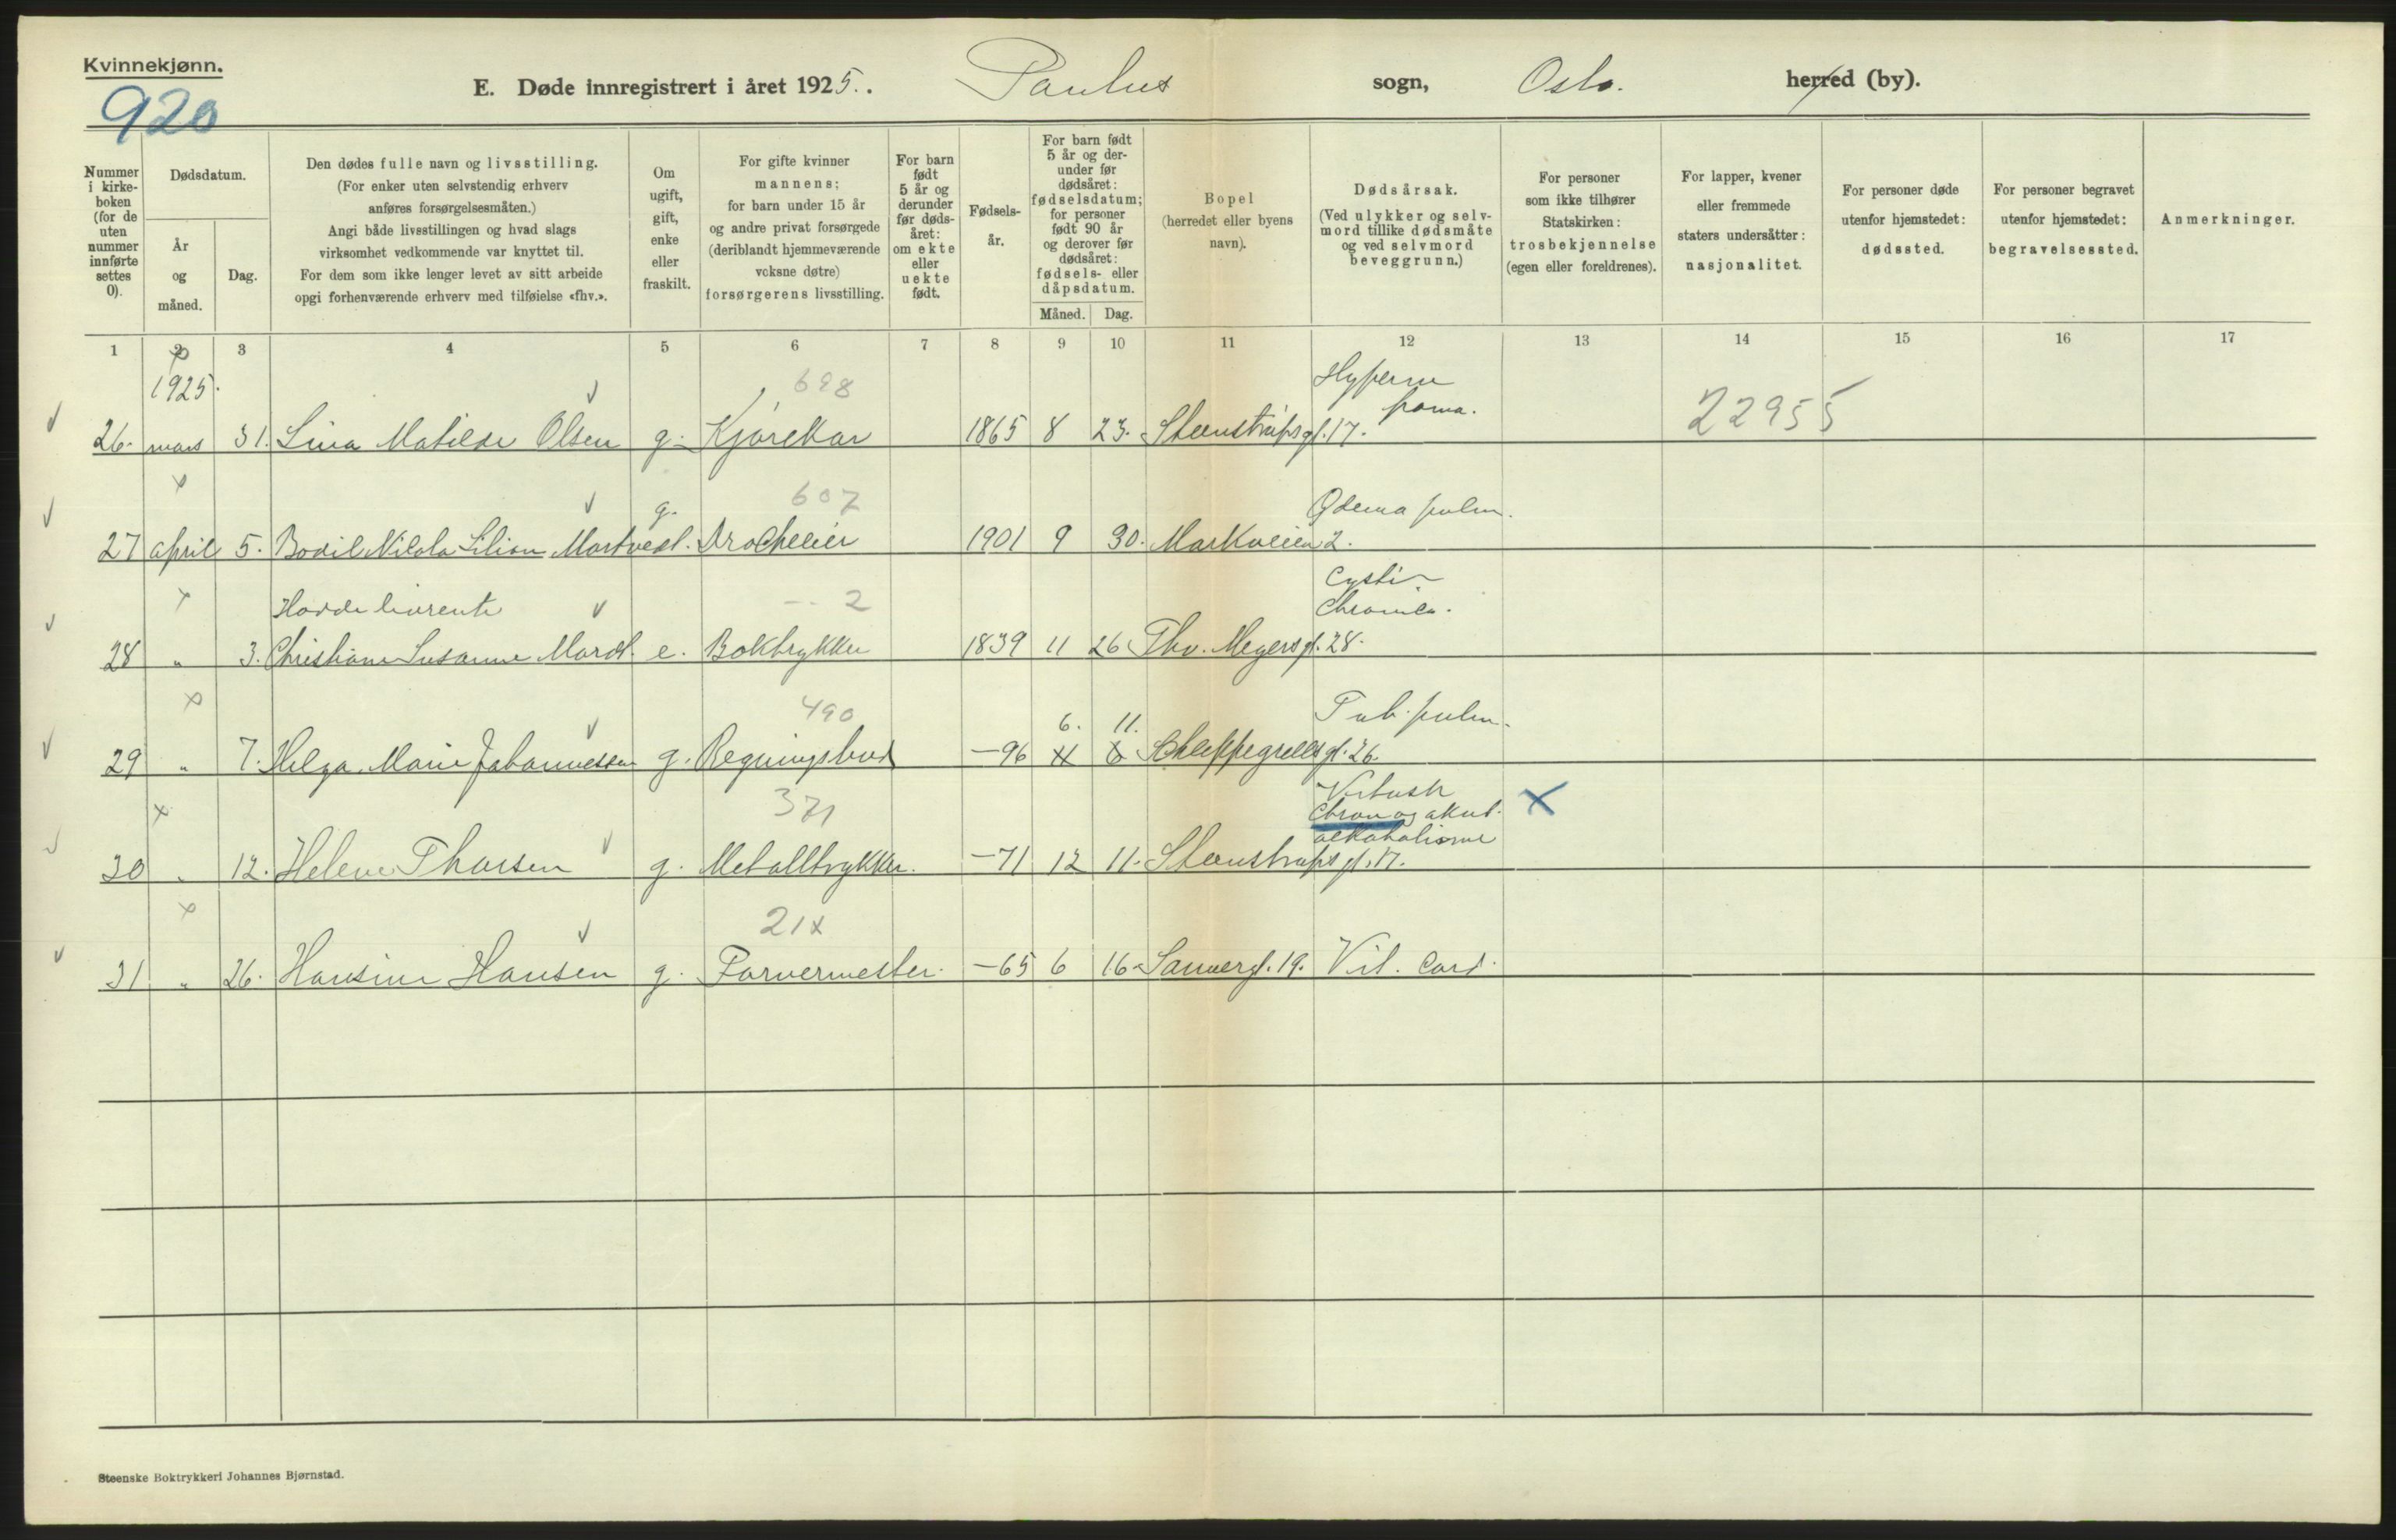 Kvinnekjønn.
920
E. Døde innregistrert i året 1925. . Paulus sogn, Oslo. herred (by).
Nummer i kirke-boken (for de uten nummer innførte settes 0).
Dødsdatum.
År og måned.
Dag.
Den dødes fulle navn og livsstilling.
(For enker uten selvstendig erhverv
anføres forsørgelsesmåten.)
Angi både livsstillingen og hvad slags
virksomhet vedkommende var knyttet til.
For dem som ikke lenger levet av sitt arbeide
opgi forhenværende erhverv med tilføielse «fhv.».
Om ugift, gift, enke eller fraskilt.
For gifte kvinner
mannens;
for barn under 15 år
og andre privat forsørgede
(deriblandt hjemmeværende
voksne døtre)
forsørgerens livsstilling.
For barn født 5 år og derunder før døds-året: om ekte eller uekte født.
Fødsels-år.
For barn født
5 år og der-
under før
dødsåret:
fødselsdatum;
for personer
født 90 år
og derover før
dødsåret:
fødsels- eller
dåpsdatum.
Måned. Dag.
Bopel
(herredet eller byens
navn).
Dødsårsak.
(Ved ulykker og selv-
mord tillike dødsmåte
og ved selvmord
beveggrunn.)
For personer
som ikke tilhører
Statskirken:
trosbekjennelse
(egen eller foreldrenes).
For lapper, kvener
eller fremmede
staters undersåtter:
nasjonalitet.
For personer døde
utenfor hjemstedet:
dødssted.
For personer begravet
utenfor hjemstedet:
begravelsessted.
Anmerkninger.
1 2 3 4 5 6 7 8 9 10 11 12 13 14 15 16 17
1925.
698
22955
26. mars 31. Lina Matilde Olsen g. Kjørekar 1865 8 23. Steenstrupsgt. 17.
607
Ødema pulm.
27 april 5. Bodil Nikola Lilian g. 1901 9 30. Markveien 2.
2
28 " 3. Christiane Susanne e. Boktrykker 1839 11 26 Thv. Meyersgt. 28.
490
6. 11.
Tub. pulm.
29 " 7. Helga Marie Johannessen g. Regningsbud -96 Schleppegrellsgt. 26.
371
Chron og akut.
alkoholisme
30 " 12. Helene Thorsen g. Metalltrykker. -71 12 11. Steenstrupsgt. 17.
21x
31 " 26. Hansine Hansen g. Farvermester. -65 6 16 Sannergt. 19. Vit. Cord.
Steenske Boktrykkeri Johannes Bjørnstad.